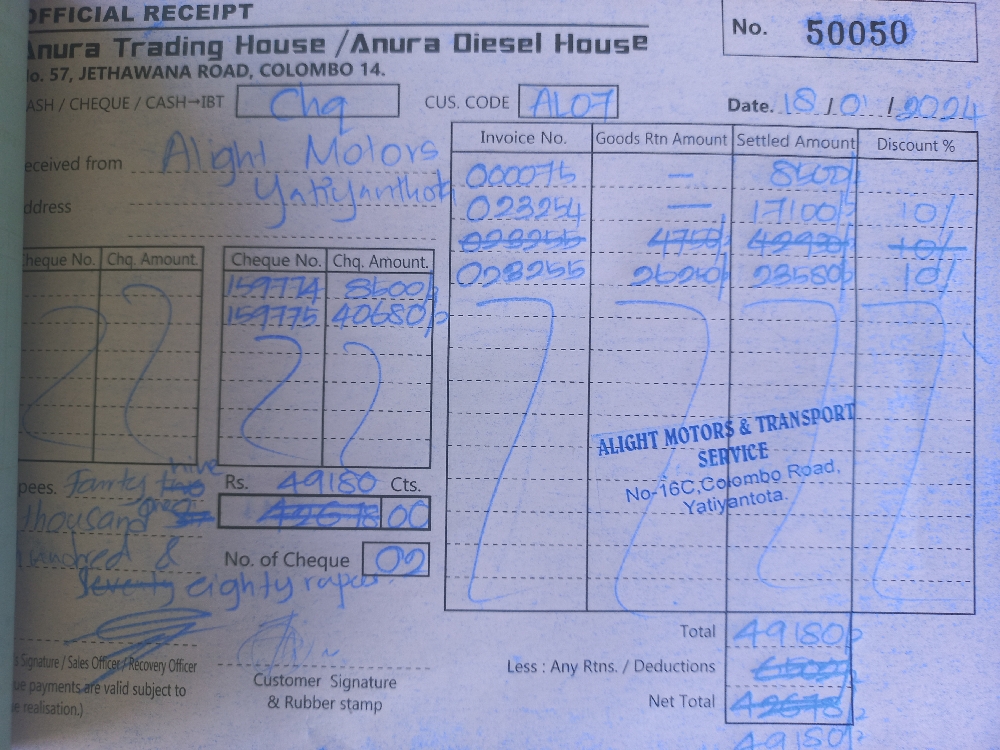 OFFICIAL RECEIPT
No. 50050
Anura Trading House / Anura Diesel House
o. 57, JETHAWANA ROAD, COLOMBO 14.
ASH / CHEQUE / CASH→IBT Chq CUS. CODE AL07 Date. 18 / 01 / 2024
Invoice No. Goods Rtn Amount Settled Amount Discount %
eceived from Alight Motors
Yatiyanthota
ddress
000075 — 8500/-
023254 — 17100/- 10/-
023255 4750/- 42930/- 10/-
023255 26250/- 23580/- 10/-
heque No. Chq. Amount. Cheque No. Chq. Amount.
159774 8500/-
159775 40680/-
ALIGHT MOTORS & TRANSPORT
SERVICE
No-16C, Colombo Road,
Yatiyantota.
pees. Fourty
Rs. 49180 Cts.
thousand
42678 00
hundred &
No. of Cheque 02
seventy eighty rupees
Total 49180/-
s Signature / Sales Officer / Recovery Officer
Less : Any Rtns. / Deductions 6500/-
ue payments are valid subject to
e realisation.)
Customer Signature
& Rubber stamp
Net Total 42678/-
49180/-